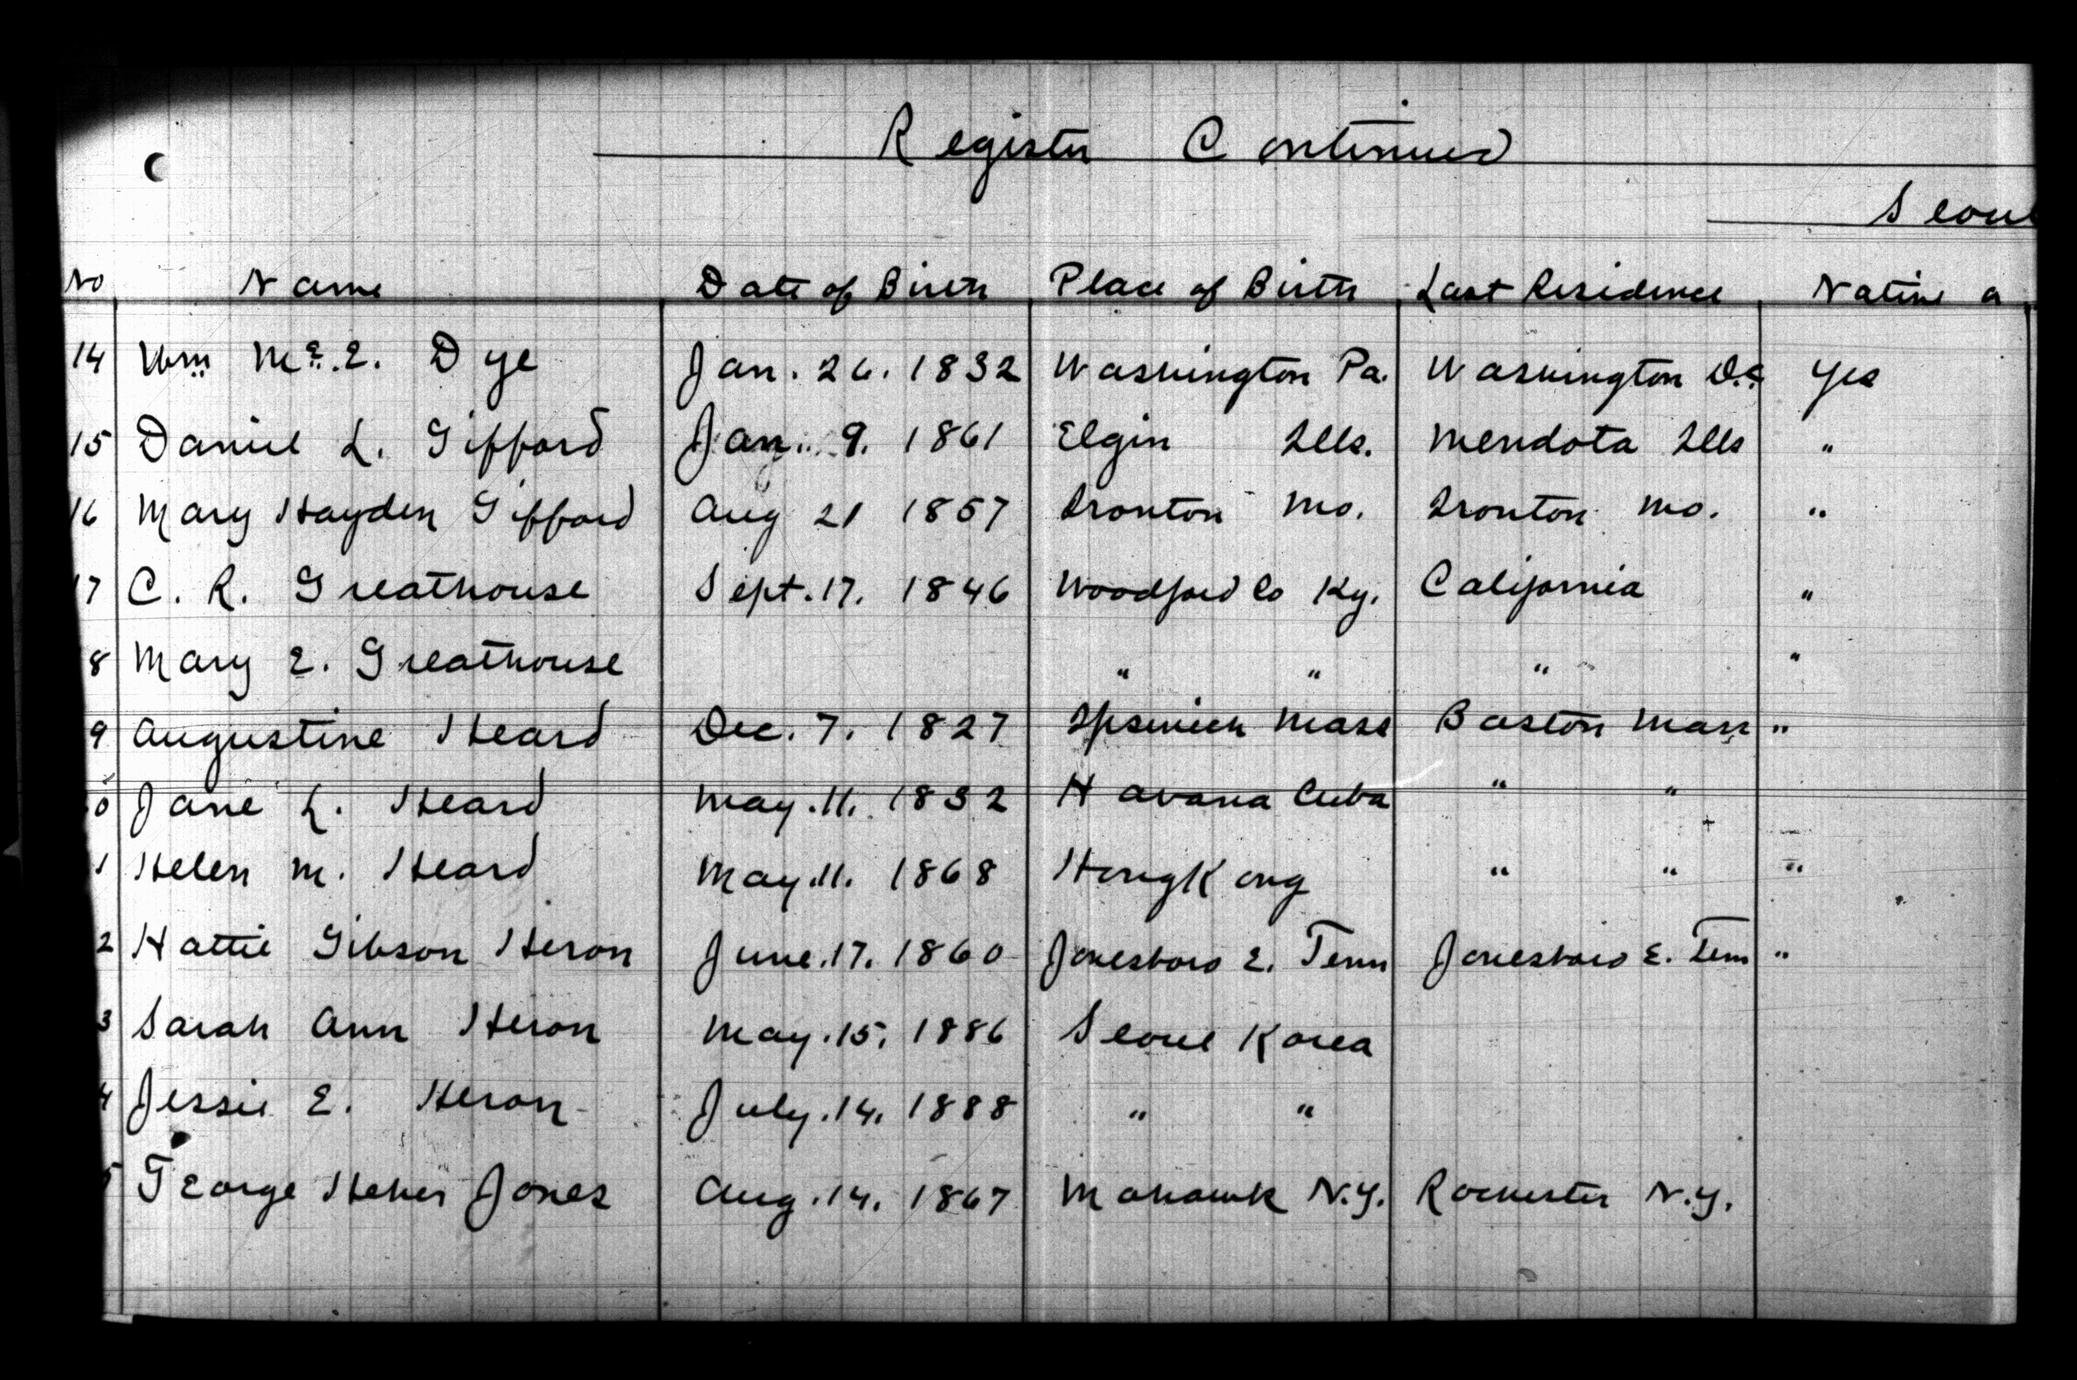 Register Continued
Seoul
No Name Date of Birth Place of Birth Last Residence Native a
14 Wm McE. Dye Jan. 26. 1832 Washington Pa. Washington D.C. Yes
15 Daniel L. Gifford Jan. 9. 1861 Elgin Ills. Mendota Ills "
16 Mary Hayden Gifford Aug 21 1857 Ironton Mo. Ironton Mo. "
17 C. R. Greathouse Sept. 17. 1846 Woodford Co Ky. California "
8 Mary E. Greathouse " " " "
9 Augustine Heard Dec. 7. 1827 Ipswich Mass Boston Mass "
0 Jane L. Heard May. 11. 1832 Havana Cuba " "
1 Helen M. Heard May. 11. 1868 HongKong " " "
2 Hattie Gibson Heron June. 17. 1860 Jonesboro E. Tenn Jonesboro E. Tenn "
3 Sarah Ann Heron May. 15. 1886 Seoul Korea
4 Jessie E. Heron July. 14. 1888 " "
5 George Heber Jones Aug. 14. 1867 Mohawk N.Y. Rochester N.Y.